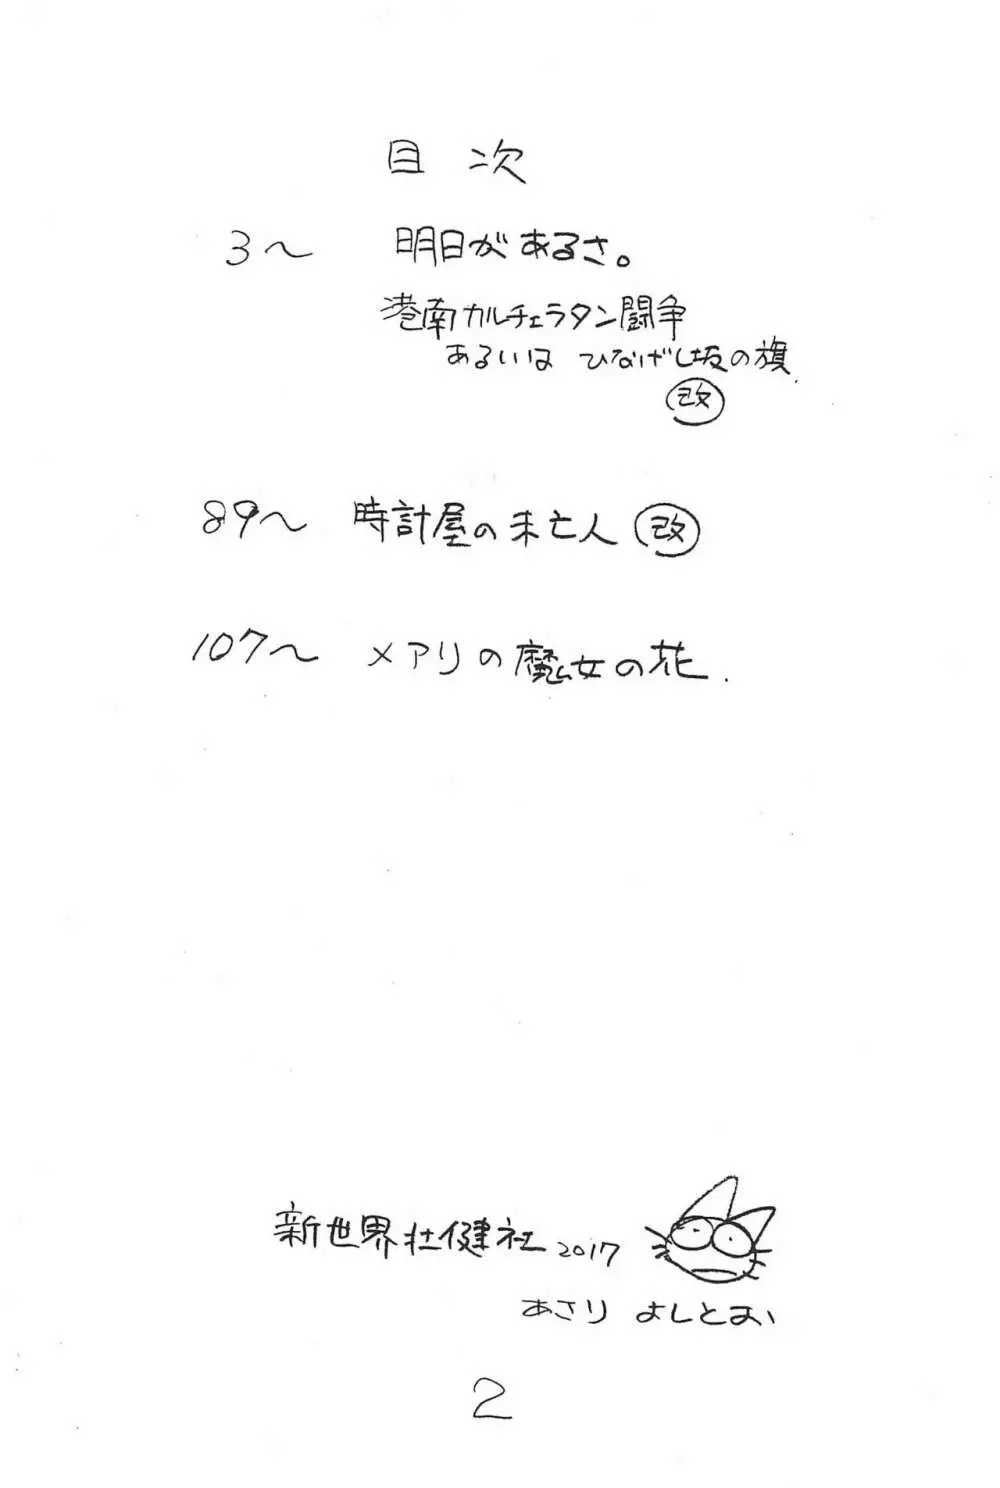 目次
3〜 明日があるさ。
港南カルチェラタン闘争
あるいは ひなげし坂の旗
改
89〜 時計屋の未亡人 改
107〜 メアリの魔女の花.
新世界壮健社 2017
あさりよしとおい
2